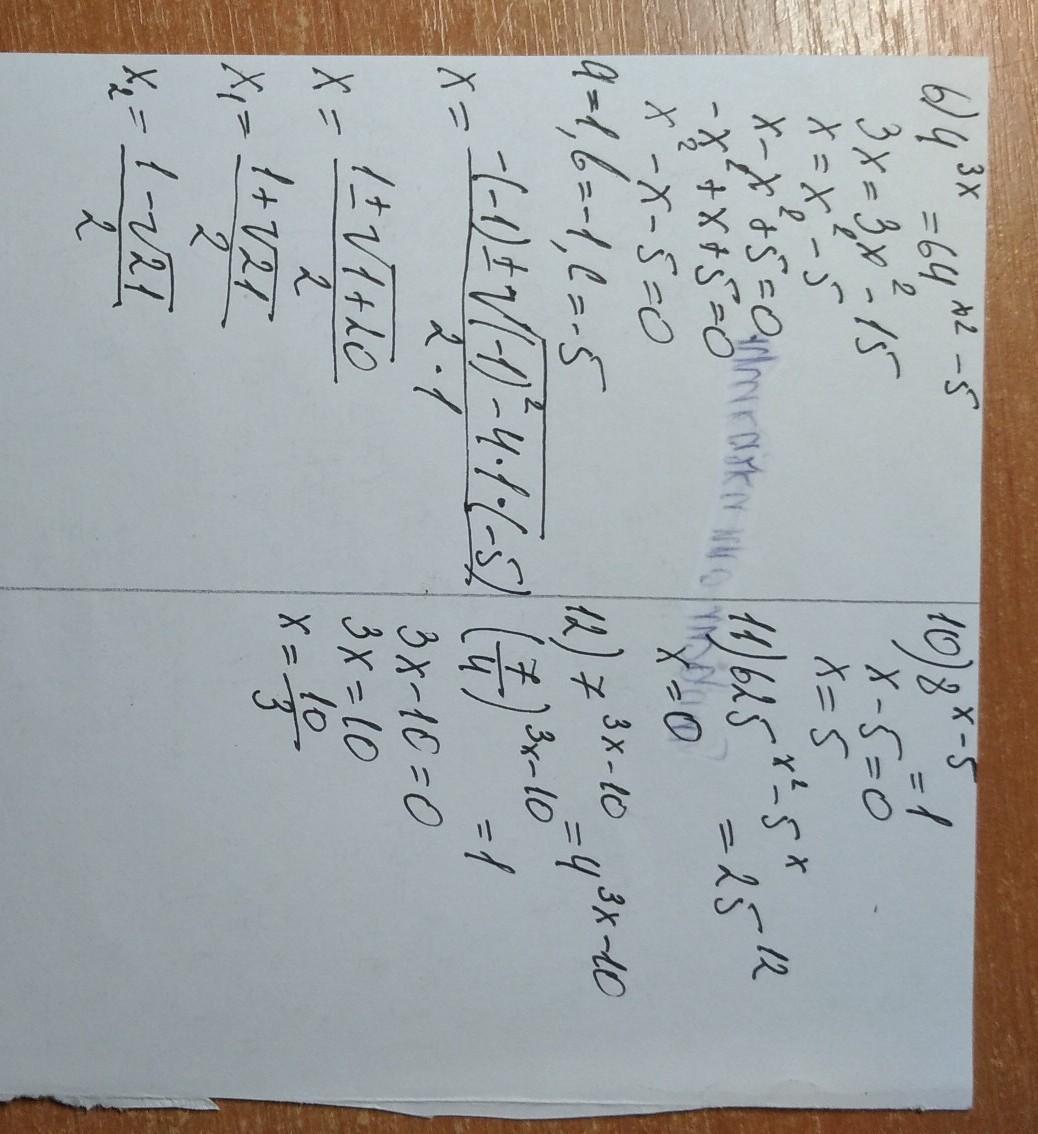 6) 4^3x = 64^x² - 5
3x = 3x² - 15
x = x² - 5
x - x² + 5 = 0
-x² + x + 5 = 0
x² - x - 5 = 0
a = 1, b = -1, c = -5
x = (-(-1) ± √((-1)² - 4·1·(-5))) / (2·1)
x = (1 ± √(1+20)) / 2
x₁ = (1 + √21) / 2
x₂ = (1 - √21) / 2
10) 8^x-5 = 1
x - 5 = 0
x = 5
11) 625^x²-5x = 25^-12
x = 0
12) 7^3x-10 = 4^3x-10
(7/4)^3x-10 = 1
3x - 10 = 0
3x = 10
x = 10/3